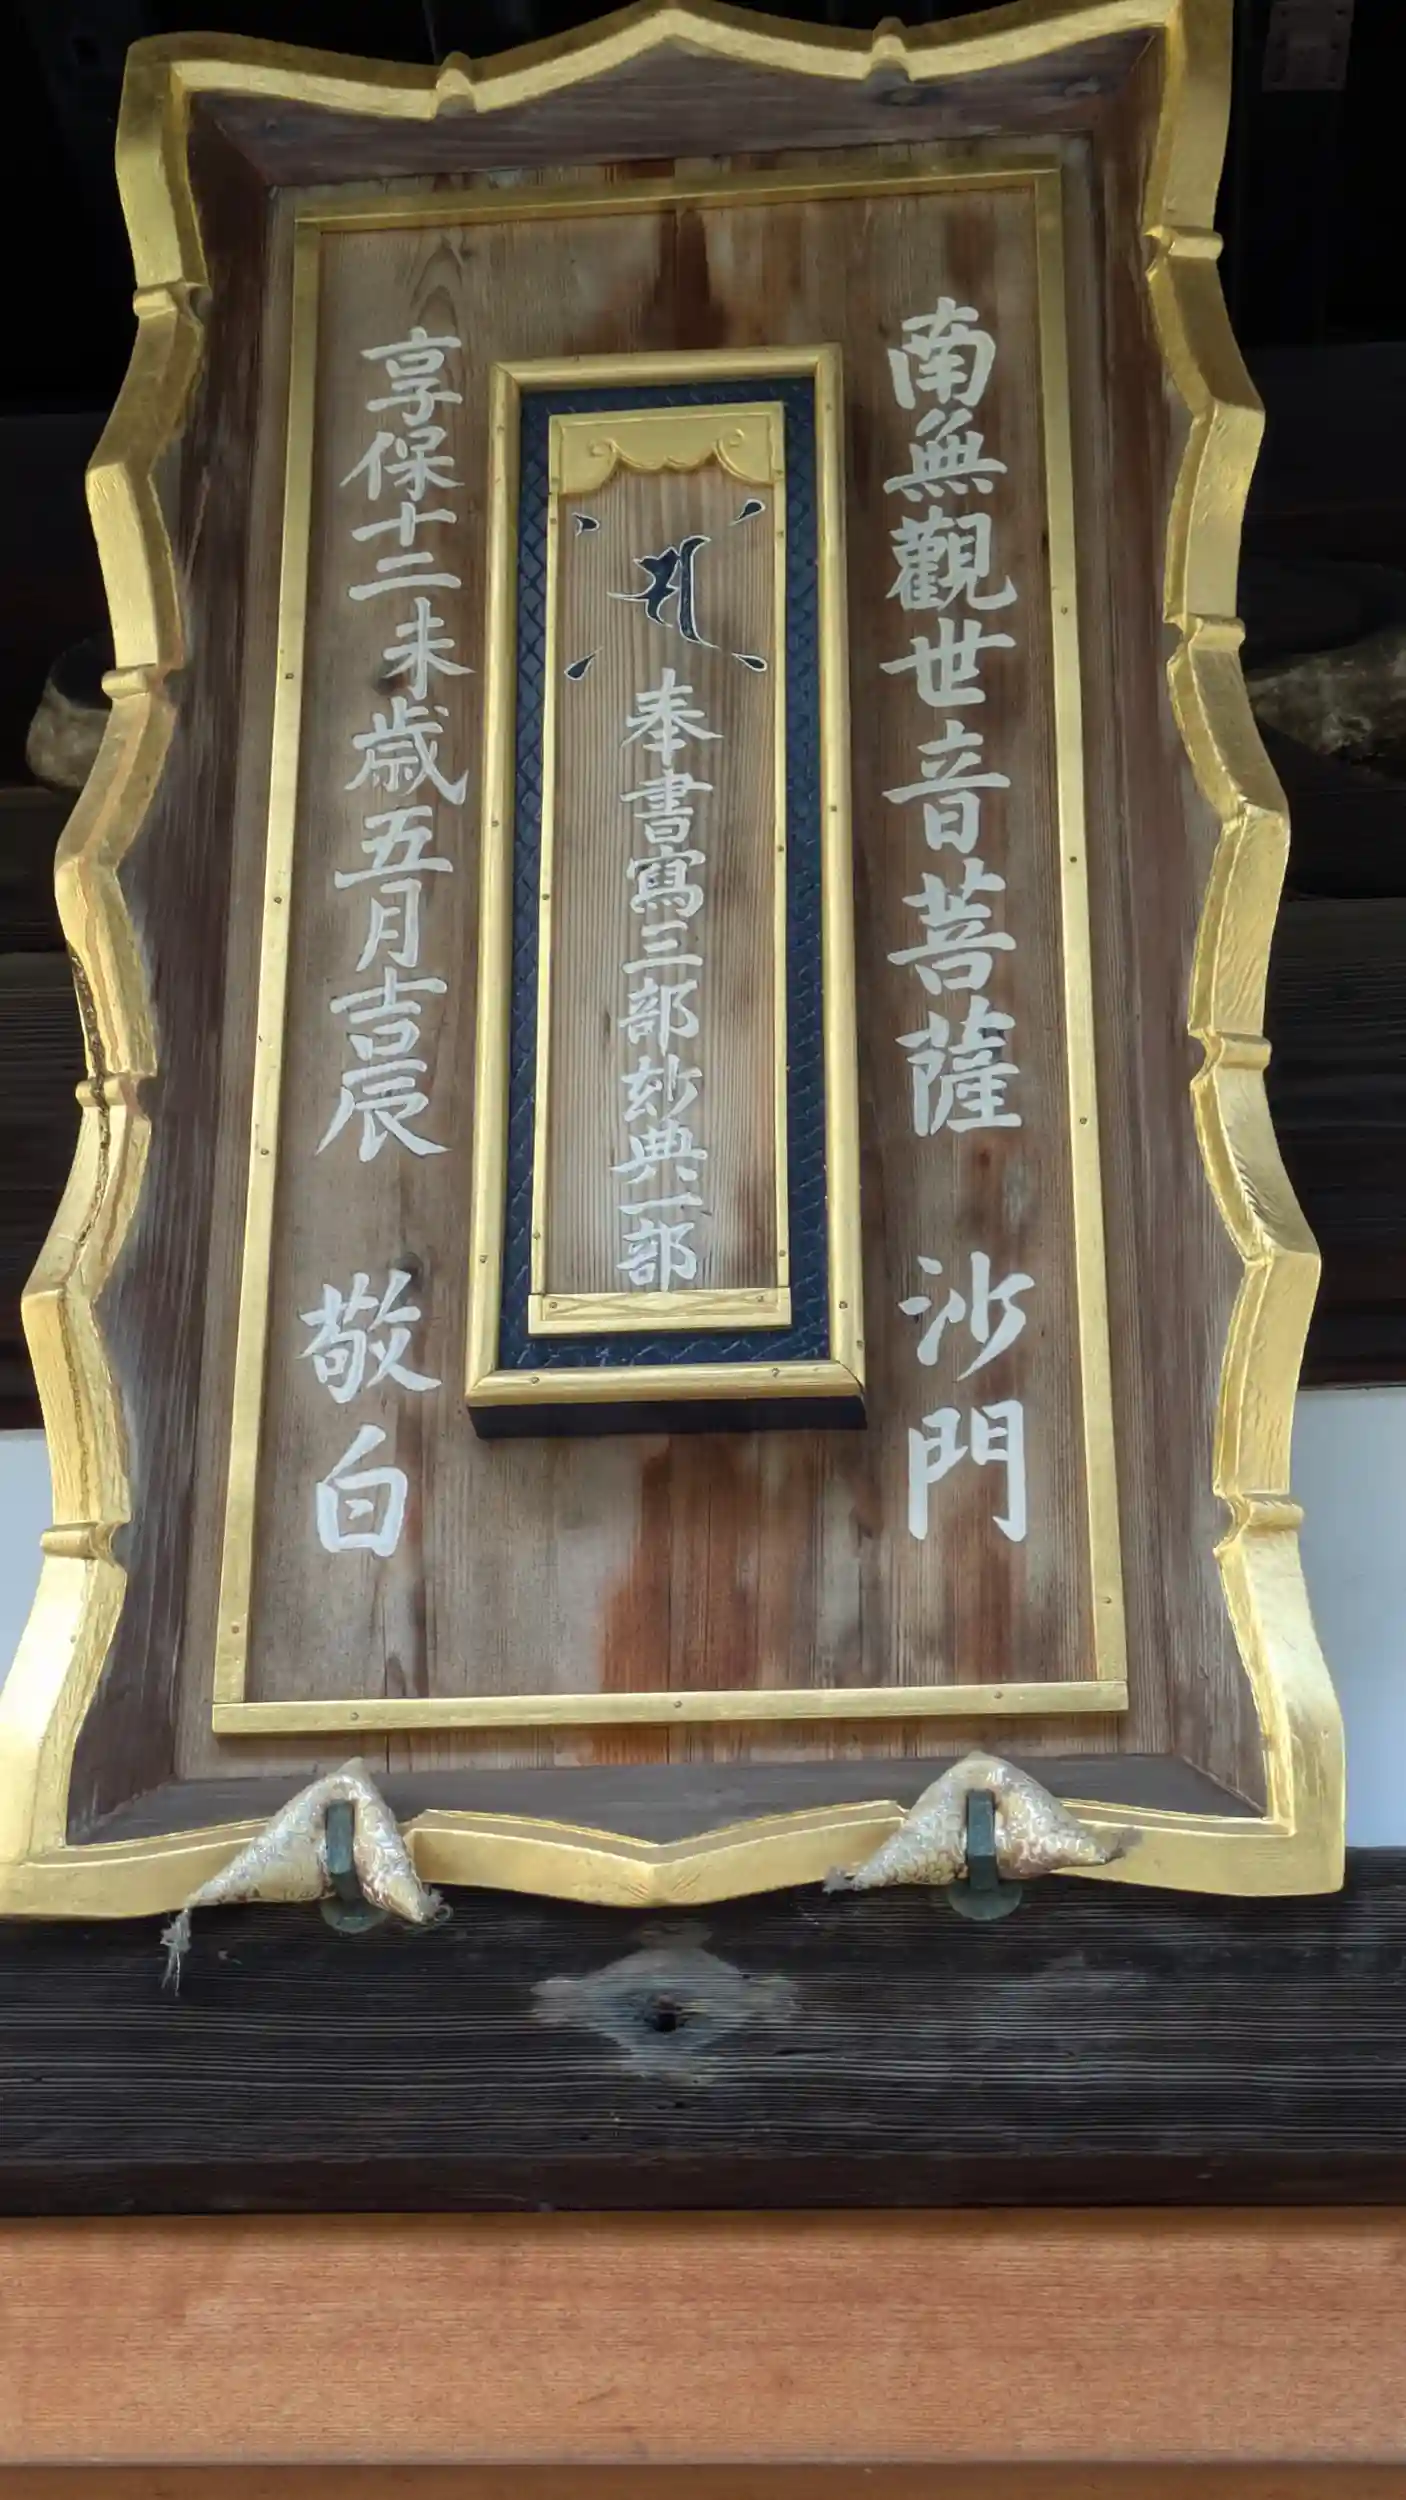 南無觀世音菩薩 沙門
奉書寫三部玅典一部
享保十二未歳五月吉辰 敬白